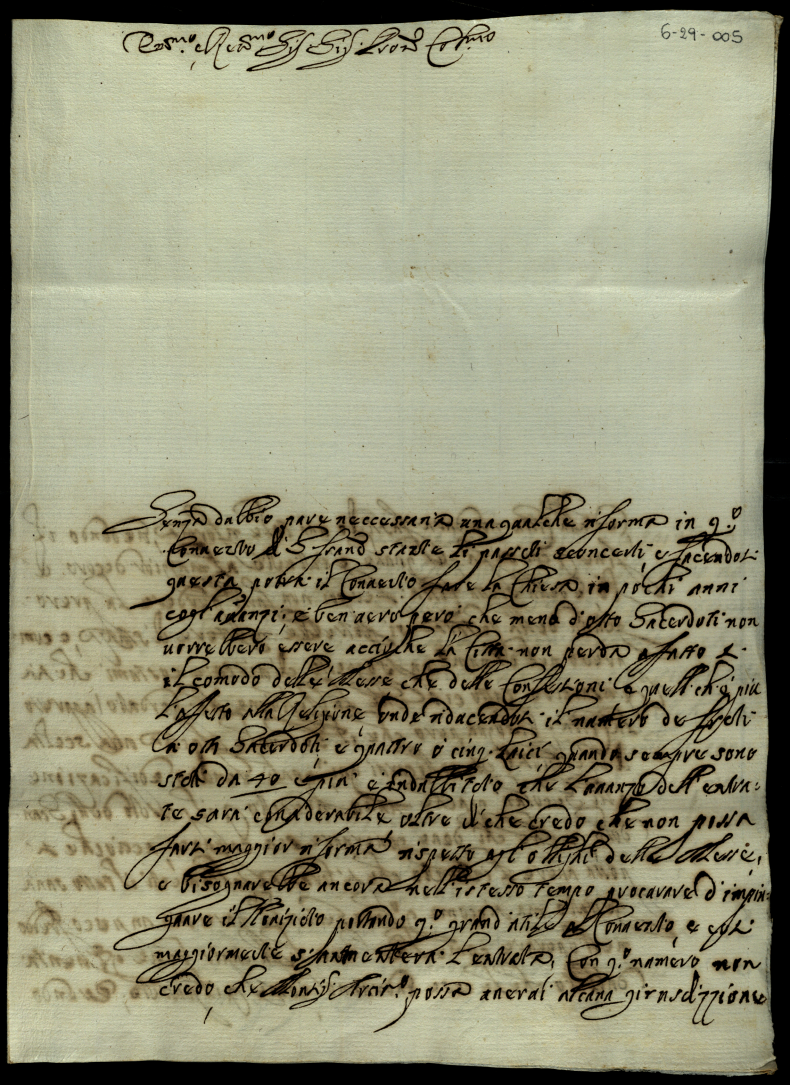 6-29-005
Em.mo e Re.mo Sig. Sig. Pron. Col.mo
Senza dubbio pare neccessaria una qualche riforma in q.o
Convento di S Franc. stante li passati sconcerti e facendosi
questa, potrà il Convento fare la Chiesa in pochi anni
cogl'avanzi; è ben vero però che meno d'otto Sacerdoti non
vorrebbero essere acciò che la Città non perda affatto
il comodo delle Messe che delle Confessioni e quell ch'è più
l'affetto alla Religione onde riducendosi il numero de frati
a otto Sacerdoti e quattro o cinq. laici quando sempre sono
stati da 40 e più è indubbitato che l'avanzo dell'entra-
te sarà considerabile oltre di che credo che non possa
farsi maggior riforma rispetto agl'oblighi delle Messe,
e bisognarebbe ancora nell'istesso tempo procurare d'impin-
guare il Noviziato portando q.o grand'utile al Convento, e così
maggiormente s'aumenterà l'entrata, Con q.o numero non
credo che Monsig. Arciv.o possa avervi alcuna giurisdizzione